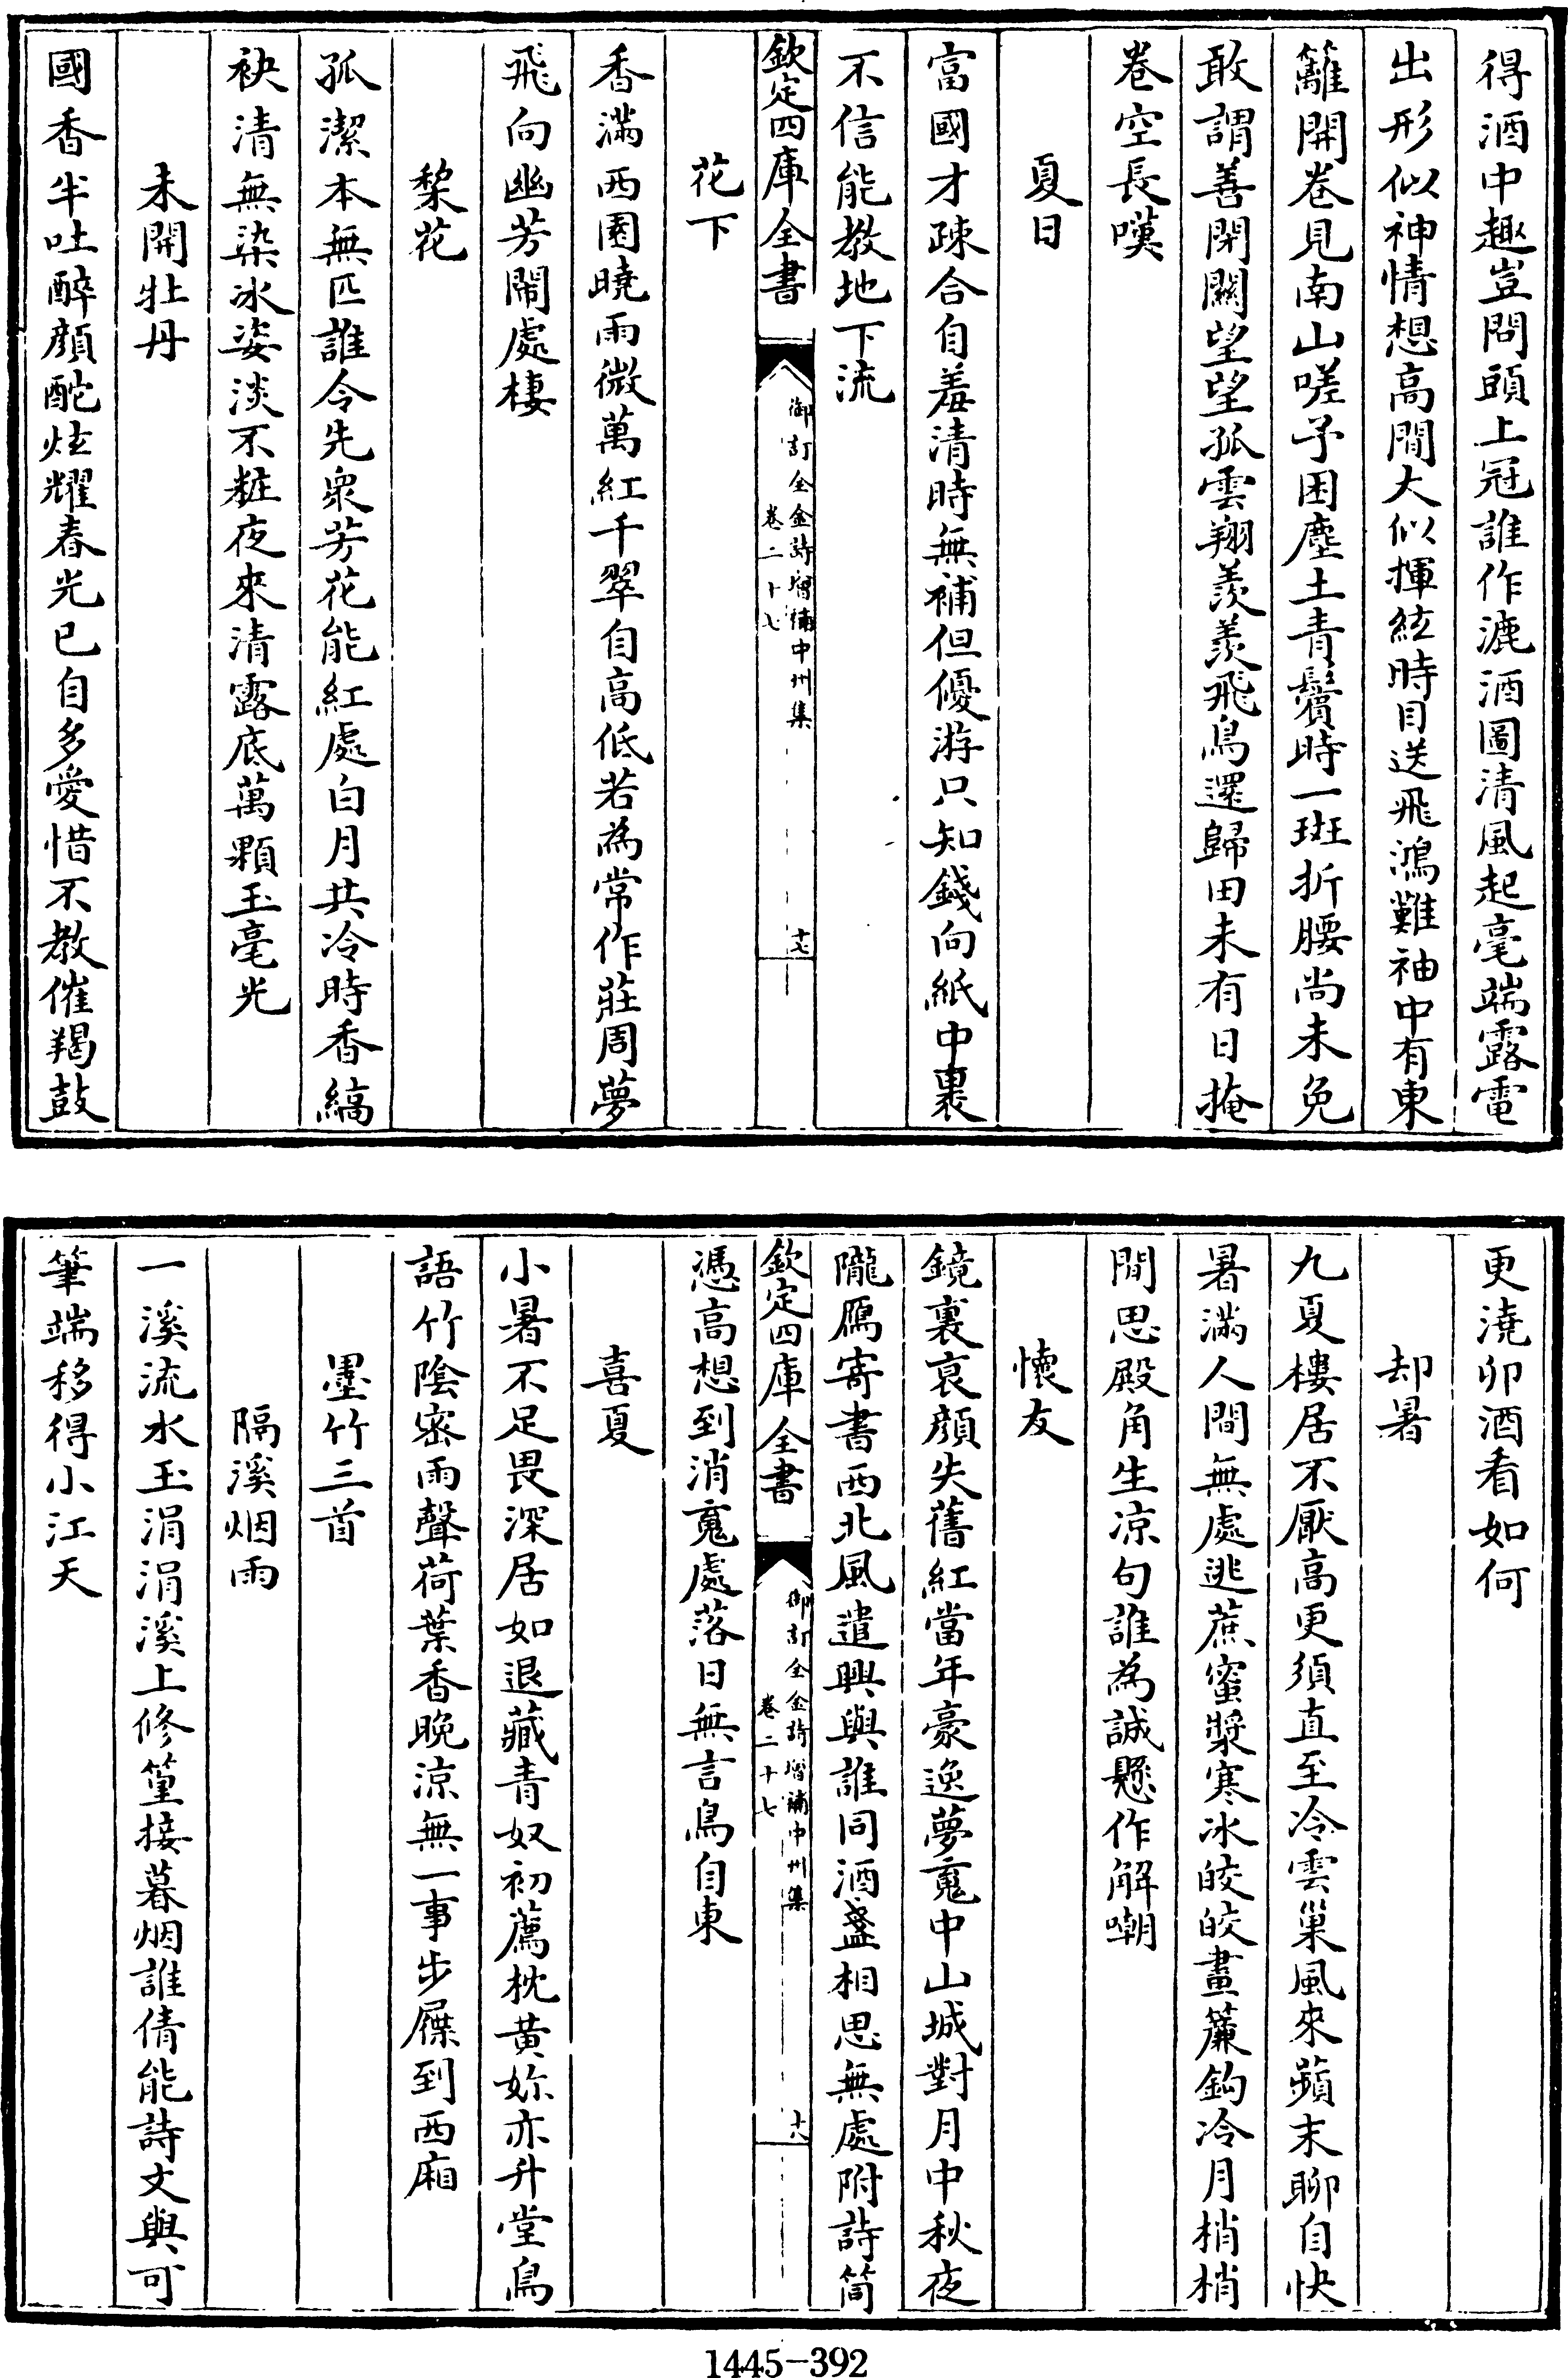 得酒中趣豈問頭上冠誰作漉酒圖清風起毫端露電
出形似神情想高閒大似揮絃時目送飛鴻難袖中有東
籬開卷見南山嗟予困塵土青鬢時一斑折腰尚未免
敢謂善閉關望望孤雲翔羡羡飛鳥還歸田未有日掩
卷空長嘆
夏日
富國才疎合自羞清時無補但優游只知錢向紙中裹
不信能教地下流
欽定四庫全書
御訂全金詩增補中州集
卷二十七
十七
花下
香滿西園曉雨微萬紅千翠自高低若為常作莊周夢
飛向幽芳閙處棲
棃花
孤潔本無匹誰令先衆芳花能紅處白月共冷時香縞
袂清無染冰姿淡不粧夜來清露底萬顆玉毫光
未開牡丹
國香半吐醉顔酡炫耀春光已自多愛惜不教催羯鼓
更澆卯酒看如何
却暑
九夏樓居不厭高更須直至冷雲巢風來蘋末聊自快
暑滿人間無處逃蔗蜜漿寒冰皎皎畫簾鈎冷月梢梢
閒思殿角生凉句誰為誠懸作解嘲
懷友
鏡裏衰顔失舊紅當年豪逸夢䰟中山城對月中秋夜
隴鴈寄書西北風遣興與誰同酒盞相思無處附詩筒
欽定四庫全書
御訂全金詩增補中州集
卷二十七
十八
憑高想到消䰟處落日無言鳥自東
喜夏
小暑不足畏深居如退藏青奴初薦枕黄妳亦升堂鳥
語竹陰宻雨聲荷葉香晚凉無一事步屧到西廂
墨竹三首
隔溪烟雨
一溪流水玉涓涓溪上修篁接暮烟誰倩能詩文與可
筆端移得小江天
1445-392